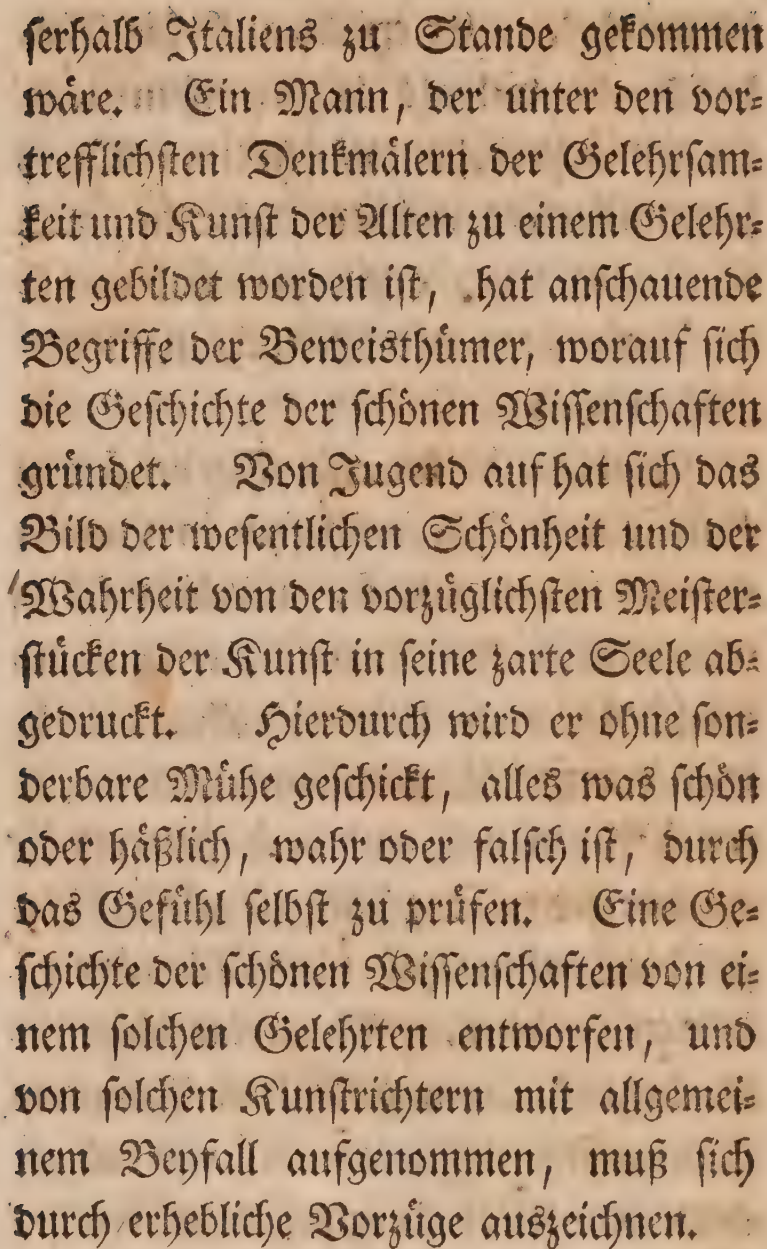 ſerhalb Italiens zu Stande gekommen
wäre. Ein Mann, der unter den vor-
trefflichſten Denkmälern der Gelehrſam-
keit und Kunſt der Alten zu einem Gelehr-
ten gebildet worden iſt, hat anſchauende
Begriffe der Beweisthümer, worauf ſich
die Geſchichte der ſchönen Wiſſenſchaften
gründet. Von Jugend auf hat ſich das
Bild der weſentlichen Schönheit und der
Wahrheit von den vorzüglichſten Meiſter-
ſtücken der Kunſt in ſeine zarte Seele ab-
gedruckt. Hierdurch wird er ohne ſon-
derbare Mühe geſchickt, alles was ſchön
oder häßlich, wahr oder falſch iſt, durch
das Gefühl ſelbſt zu prüfen. Eine Ge-
ſchichte der ſchönen Wiſſenſchaften von ei-
nem ſolchen Gelehrten entworfen, und
von ſolchen Kunſtrichtern mit allgemei-
nem Beyfall aufgenommen, muß ſich
durch erhebliche Vorzüge auszeichnen.